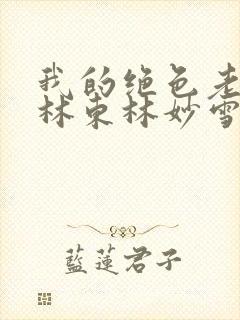 我的绝色老
林东林妙雪
藍蓮君子